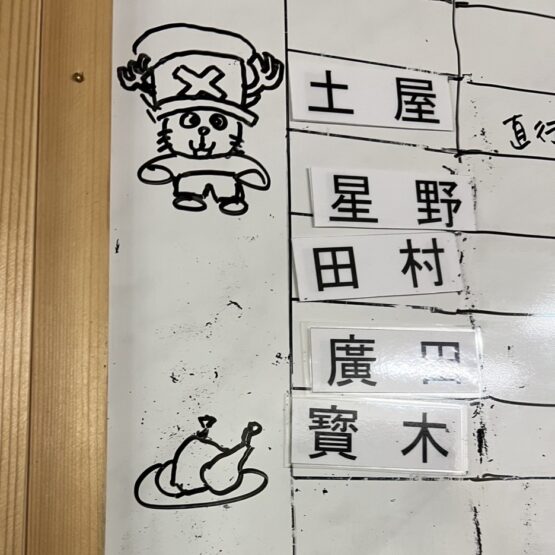 土屋
直行
星野
田村
廣田
寶木